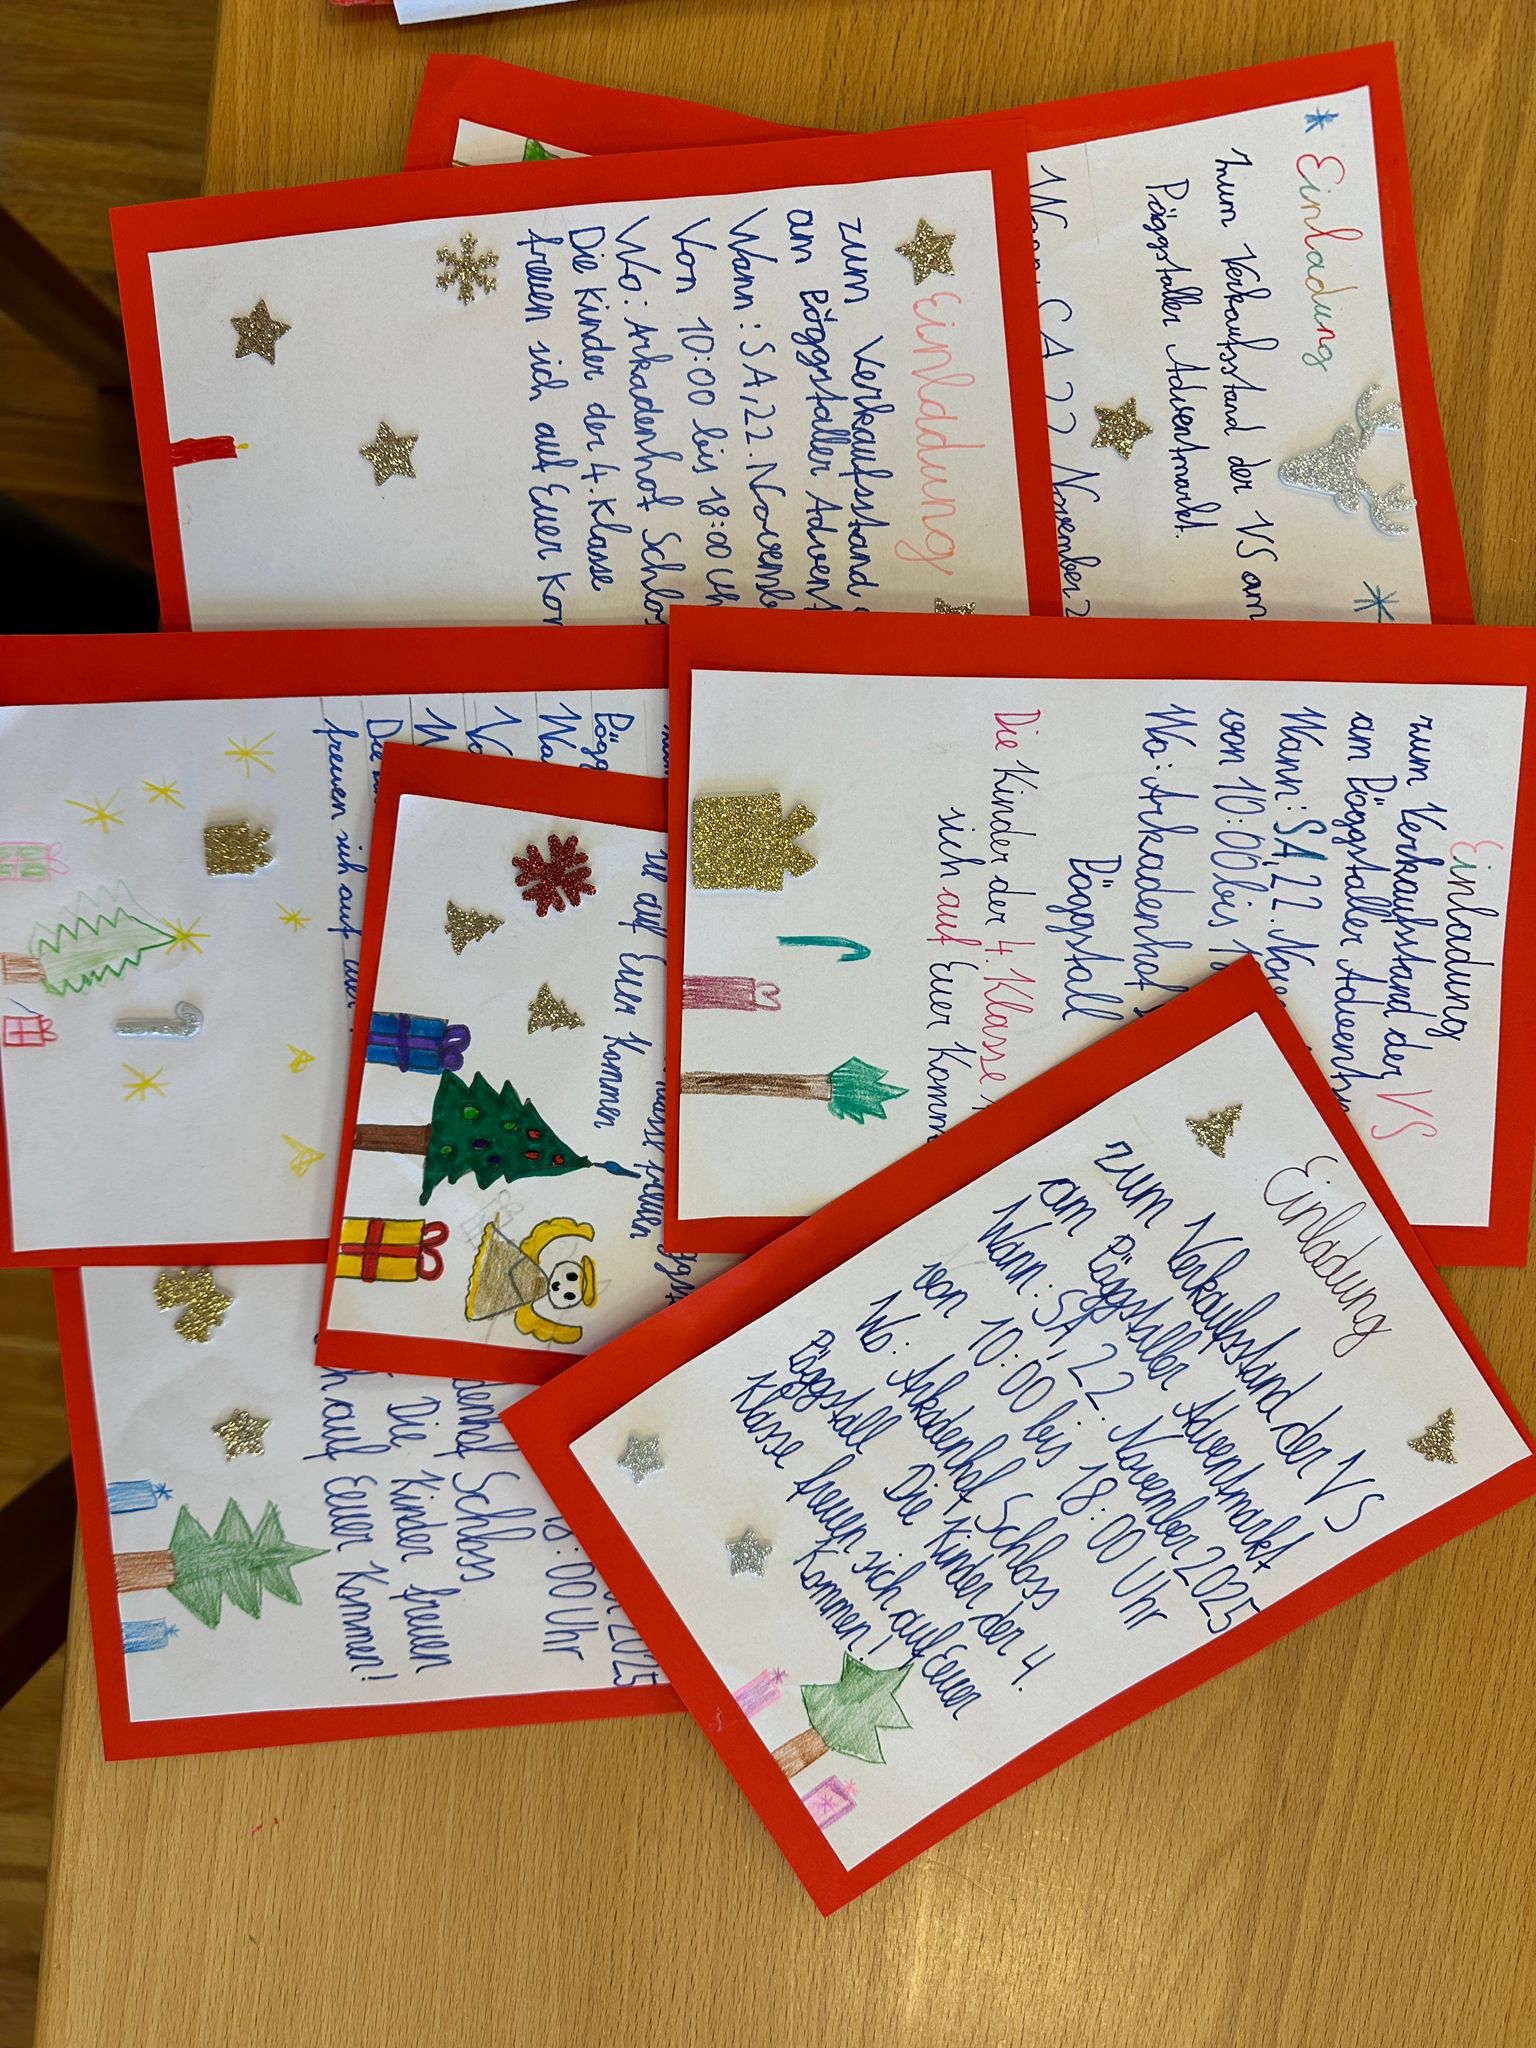 Einladung
zum Verkaufsstand der VS am
Pöggstaller Adventmarkt.
Wann: SA 22. November 2
Einladung
zum Verkaufsstand
am Pöggstaller Advent
Wann: SA, 22. Novemb
Von 10:00 bis 18:00 Uh
Wo: Arkadenhof Schlos
Die Kinder der 4. Klasse
freuen sich auf Euer Kom
Einladung
zum Verkaufsstand der VS
am Pöggstaller Adventm
Wann: SA, 22. Nove
von 10:00 bis 18
Wo: Arkadenhof
Pöggstall
Die Kinder der 4. Klasse
sich auf Euer Komm
Pögg
Wa
Vo
W
Die
freuen sich auf
Klasse freuen
auf Euer Kommen
Einladung
zum Verkaufsstand der VS
am Pöggstaller Adventmarkt
Wann: SA, 22. November 2025
von 10:00 bis 18:00 Uhr
Wo: Arkadenhof Schloss
Pöggstall Die Kinder der 4.
Klasse freuen sich auf Euer
Kommen!
2025
18:00 Uhr
denhof Schloss
Die Kinder freuen
ch auf Eeuer Kommen!